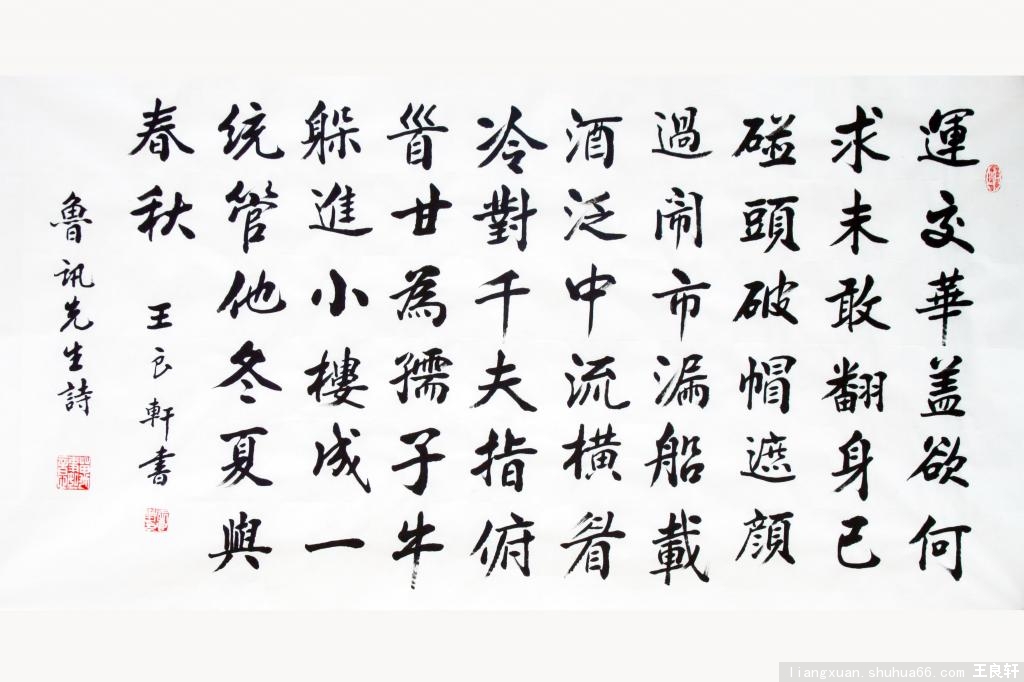 運交華盖欲何
求未敢翻身已
碰頭破帽遮顔
過闹市漏船載
酒泛中流横眉
冷對千夫指俯
首甘為孺子牛
躲進小樓成一
统管他冬夏與
春秋 王良軒書
魯訊先生詩
liangxuan.shuhua66.com 王良轩